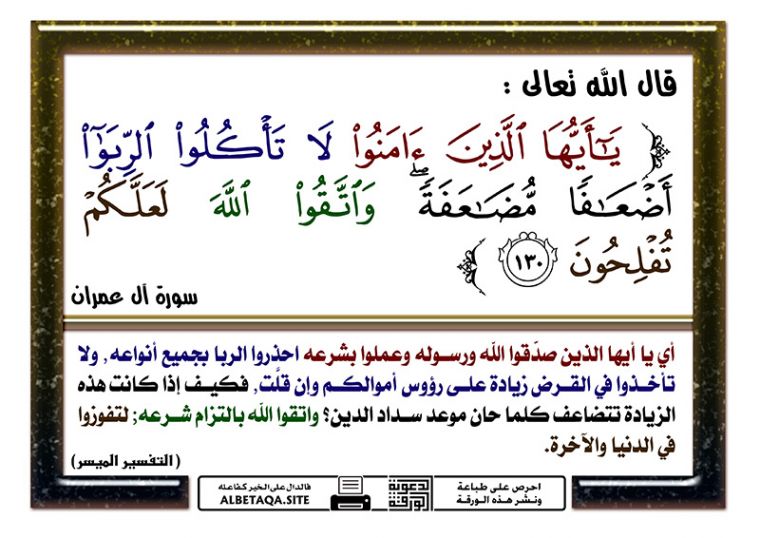 قال الله تعالى :
﴿ يَـٰٓأَيُّهَا ٱلَّذِينَ ءَامَنُوا۟ لَا تَأْكُلُوا۟ ٱلرِّبَوٰٓا۟
أَضْعَـٰفًا مُّضَـٰعَفَةً ۖ وَٱتَّقُوا۟ ٱللَّهَ لَعَلَّكُمْ
تُفْلِحُونَ ١٣٠ ﴾
سورة آل عمران
أي يا أيها الذين صدّقوا الله ورسوله وعملوا بشرعه احذروا الربا بجميع أنواعه, ولا
تأخذوا في القرض زيادة على رؤوس أموالكم وإن قلَّت, فكيف إذا كانت هذه
الزيادة تتضاعف كلما حان موعد سداد الدين؟ واتقوا الله بالتزام شرعه; لتفوزوا
في الدنيا والآخرة.
(التفسير الميسر)
احرص على طباعة
ونشر هذه الورقة
الدعوية
الورقة
فالدال على الخير كفاعله
ALBETAQA.SITE